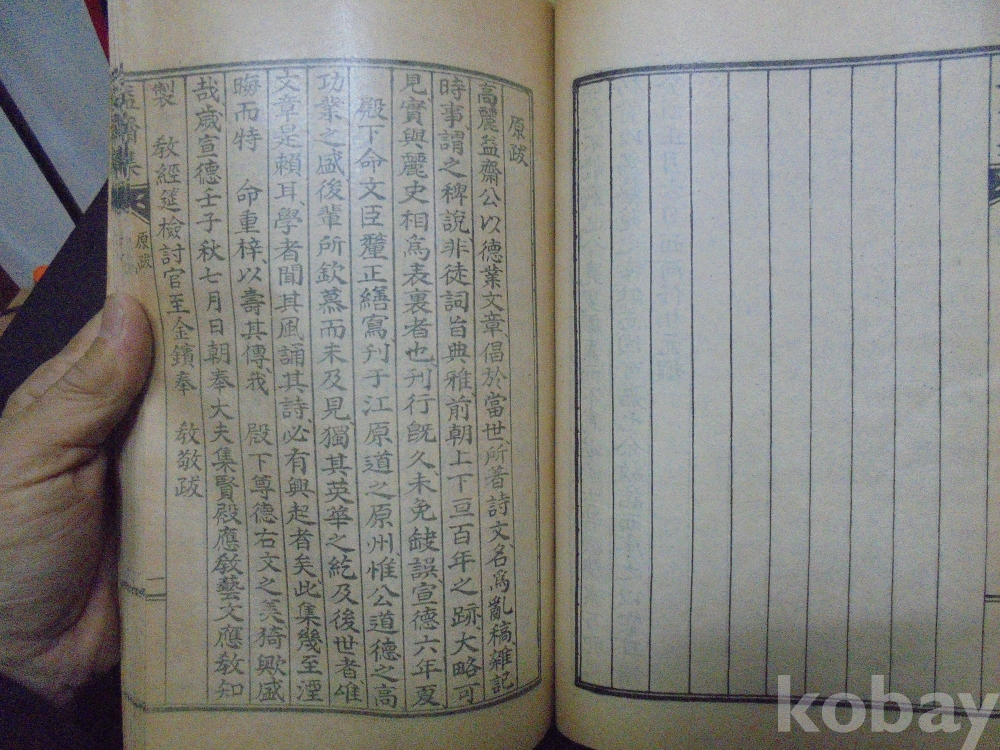 原跋
高麗益齋公以德業文章倡於當世所著詩文名爲亂稿雜記
時事謂之稗說非徒詞旨典雅前朝上下亘百年之跡大略可
見實與麗史相爲表裏者也刊行旣久未免缺誤宣德六年夏
殿下命文臣釐正繕寫刊于江原道之原州惟公道德之高
功業之盛後輩所欽慕而未及見獨其英華之紀及後世者唯
文章是賴耳學者聞其風誦其詩必有興起者矣此集幾至湮
晦而特 命重梓以壽其傳我 殿下尊德右文之美猗歟盛
哉歲宣德壬子秋七月日朝奉大夫集賢殿應敎藝文應敎知
製 敎經筵檢討官至金鑌奉 敎敬跋
益齋集
原跋
一
kobay